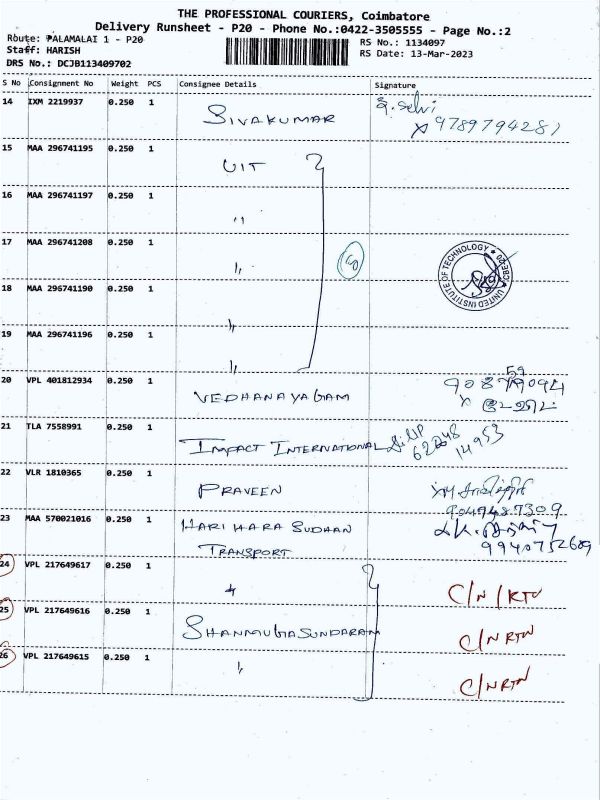 THE PROFESSIONAL COURIERS, Coimbatore
Delivery Runsheet - P20 - Phone No.:0422-3505555 - Page No.:2
Route: PALAMALAI 1 - P20
Staff: HARISH
DRS No.: DCJB113409702
RS No.: 1134097
RS Date: 13-Mar-2023
S No Consignment No Weight PCS Consignee Details Signature
14 IXM 2219937 0.250 1 SIVAKUMAR 9789794281
15 MAA 296741195 0.250 1 UIT
16 MAA 296741197 0.250 1 "
17 MAA 296741208 0.250 1 "
UNITED INSTITUTE OF TECHNOLOGY
18 MAA 296741190 0.250 1 "
19 MAA 296741196 0.250 1 "
20 VPL 401812934 0.250 1 VEDHANAYAGAM
21 TLA 7558991 0.250 1 IMPACT INTERNATIONAL
22 VLR 1810365 0.250 1 PRAVEEN
9049487309
23 MAA 570021016 0.250 1 HARI HARA SUDHAN
TRANSPORT 9940752689
24 VPL 217649617 0.250 1 " C/N/RTN
25 VPL 217649616 0.250 1 SHANMUGASUNDARAM C/N RTN
26 VPL 217649615 0.250 1 " C/N RTN